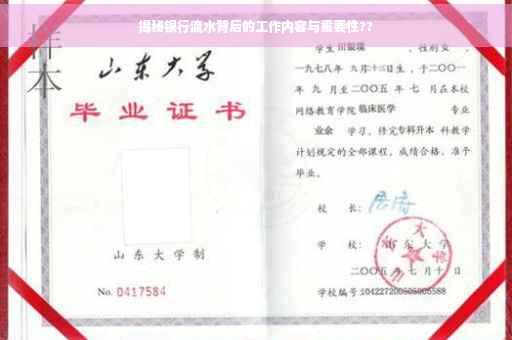 揭秘银行流水背后的工作内容与重要性??
样本
山东大学
毕业证书
山东大学制
No. 0417584
学生 田银瑞 ，性别女，
一九七八年 九月十三日生，于二〇〇一
年 九 月至二〇〇五 年 七 月在本校
网络教育学院 临床医学 专业
业余 学习，修完专科升本 科教学
计划规定的全部课程，成绩合格，准予
毕业。
校 长：
学 校：山东大学
二〇〇五 年 七 月 十 日
学校编号:104227200505005588